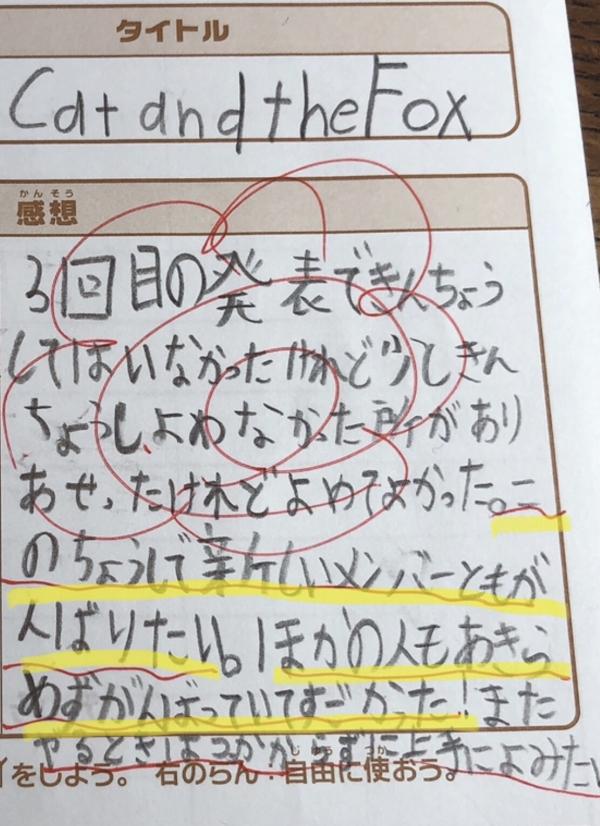 タイトル
Cat and the Fox
かんそう
感想
3回目の発表できんちょう
してはいなかったけれど少しきん
ちょうしよわなかった所があり
あせったけれどよめてよかった。こ
のちょうしで新しいメンバーともが
んばりたい。ほかの人もあきら
めずがんばっていてすごかった!また
やるときはつっかからずに上手によみたい
じゆう つか
をしよう。右のらん・自由に使おう。